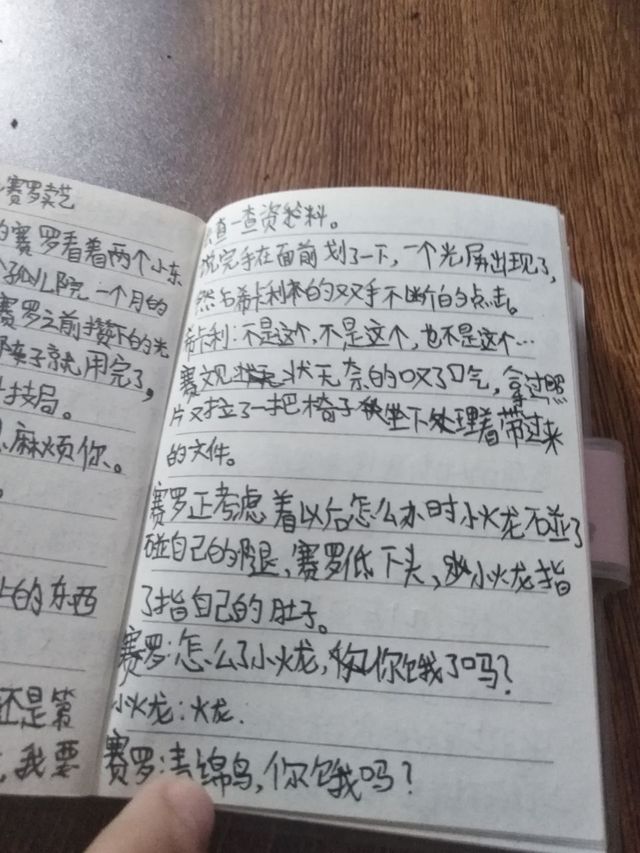 赛罗卖艺
的赛罗看着两个小东
孤儿院一个月的
赛罗之前攒下的光
阵子就用完了,
技局。
麻烦你。
上的东西
还是第
,我要
直一查资料。
说完手在面前划了一下,一个光屏出现了,
然后希卡利的双手不断的点击。
希卡利:不是这个,不是这个,也不是这个…
赛文见状无奈的叹了口气,拿过照
片又拉了一把椅子坐下处理着带过来
的文件。
赛罗正考虑着以后怎么办时小火龙碰了
碰自己的腿,赛罗低下头,小火龙指
了指自己的肚子。
赛罗:怎么了小火龙,你饿了吗?
小火龙:火龙.
赛罗:青绵鸟,你饿吗?